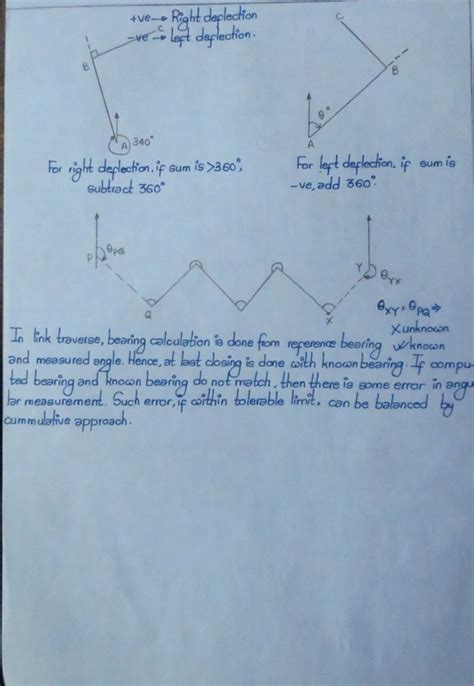 +ve → Right deflection
-ve → left deflection.
C
B
A 340°
C
B
θ°
A
For right deflection, if sum is >360°,
subtract 360°
For left deflection, if sum is
-ve, add 360°.
P
θPQ
Q
X
Y
θYX
θXY, θPQ ⇒
X unknown
✓known
In link traverse, bearing calculation is done from reference bearing
and measured angle. Hence, at last closing is done with known bearing. If compu-
ted bearing and known bearing do not match, then there is some error in angu
lar measurement. Such error, if within tolerable limit, can be balanced by
cummulative approach.